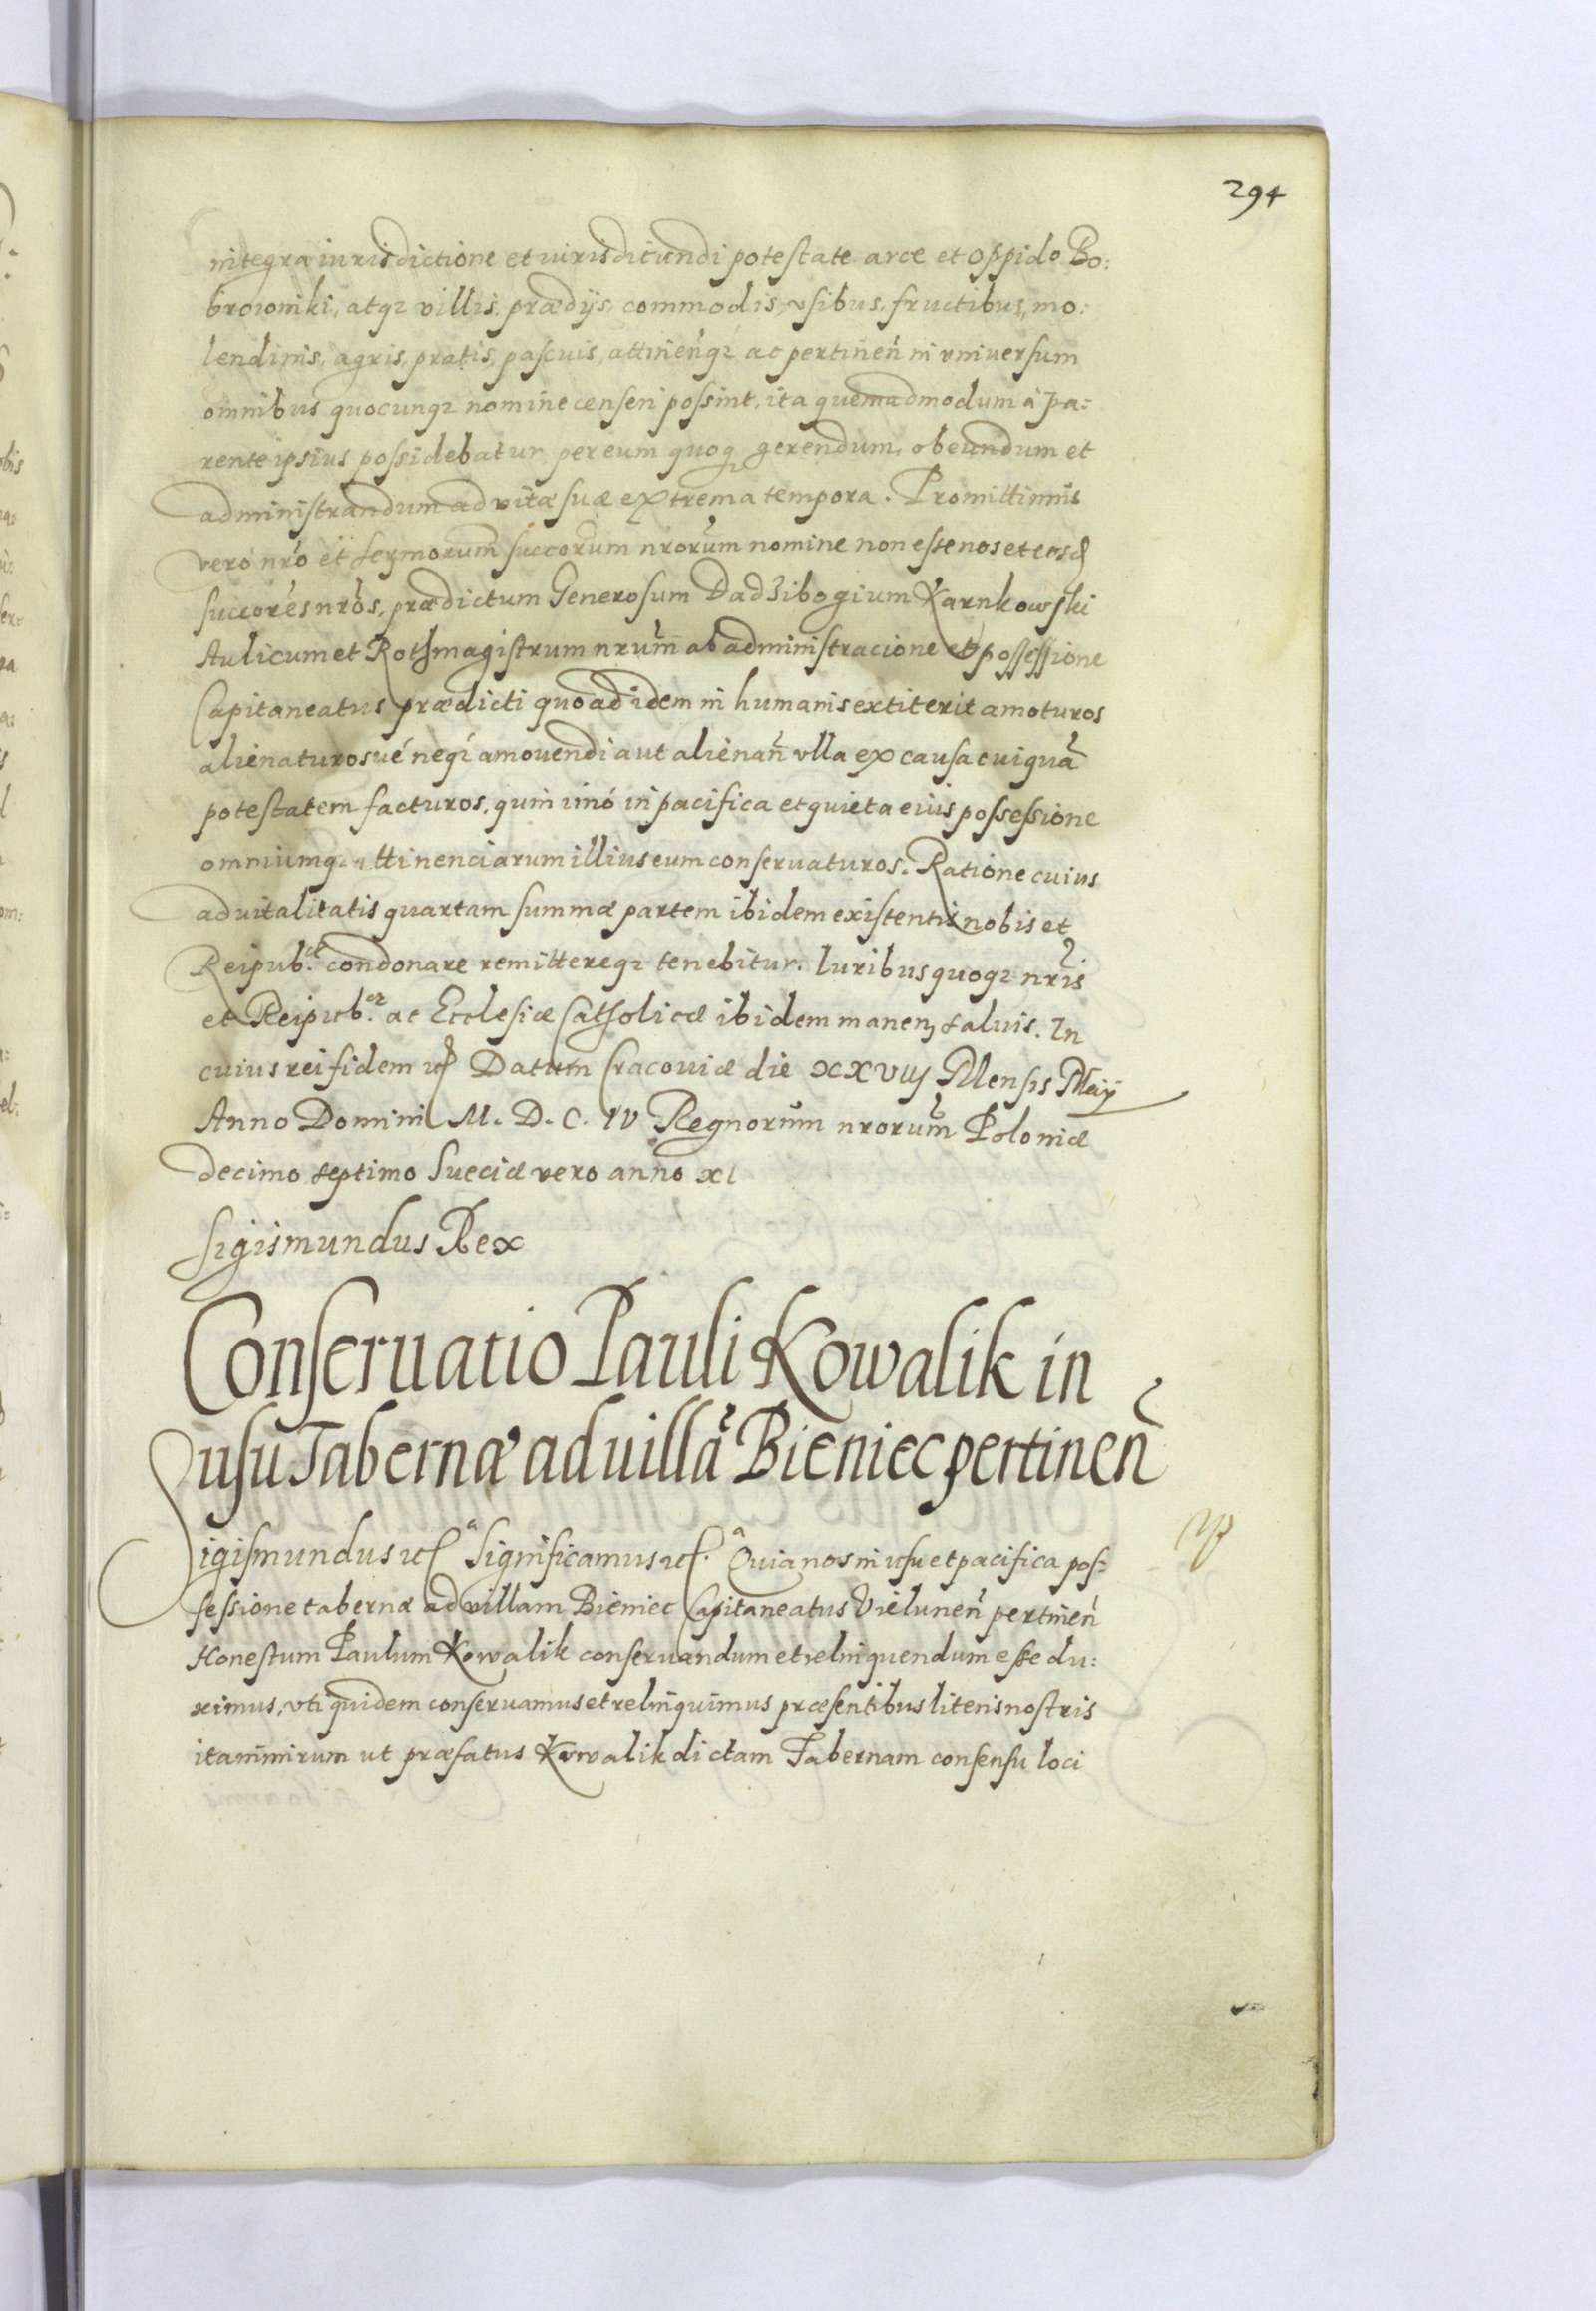 294
integra iurisdictione et iurisdicundi potestate arce et oppido Bo:
browniki, atqz villis, prædijs, commodis, vsibus, fructibus, mo:
lendinis, agris, pratis, pascuis, attineñqz ac pertineñ in vniversum
omnibus quocunqz nomine censeri possint, ita quemadmodum à pa:
rente ipsius possidebatur per eum quoq gerendum, obeundum et
administrandum ad vitæ suæ extrema tempora. Promittimus
vero nro et Sermorum succorum nrorum nomine non esse nos et eosd
succores nros, prædictum Generosum Dadzibogium Karnkowski
Aulicum et Rothmagistrum nrum ab administracione et possessione
Capitaneatus prædicti quoad idem in humanis extiterit amoturos
alienaturosué neqz amouendi aut alienañ vlla ex causa cuiquã
potestatem facturos, quin imó in pacifica et quieta eius possessione
omniumqz attinenciarum illius eum conseruaturos. Ratione cuius
aduitalitatis quartam summæ partem ibidem existentis nobis et
Reipub.cæ condonare remittereqz tenebitur. Iuribus quoqz nris
et Reipub.cæ ac Ecclesiæ Catholicæ ibidem maneñ saluis. In
cuius rei fidem etc Datum Cracouiæ die XXVIIJ Mensis Maij
Anno Domini M. D. C. IV Regnorum nrorum Poloniæ
decimo septimo Sueciæ vero anno XI
Sigismundus Rex
Conseruatio Pauli Kowalik in
usu Tabernæ ad villã Bieniec pertineñ
Sigismundus etc a Significamus etc. a Quia nos in usu et pacifica pos:
sessione tabernæ ad villam Bieniec Capitaneatus Vieluneñ pertineñ
Honestum Paulum Kowalik conseruandum et relinquendum esse du:
ximus, vti quidem conseruamus et relinquimus præsentibus literis nostris
ita nimirum ut præfatus Kowalik dictam Tabernam consensu loci